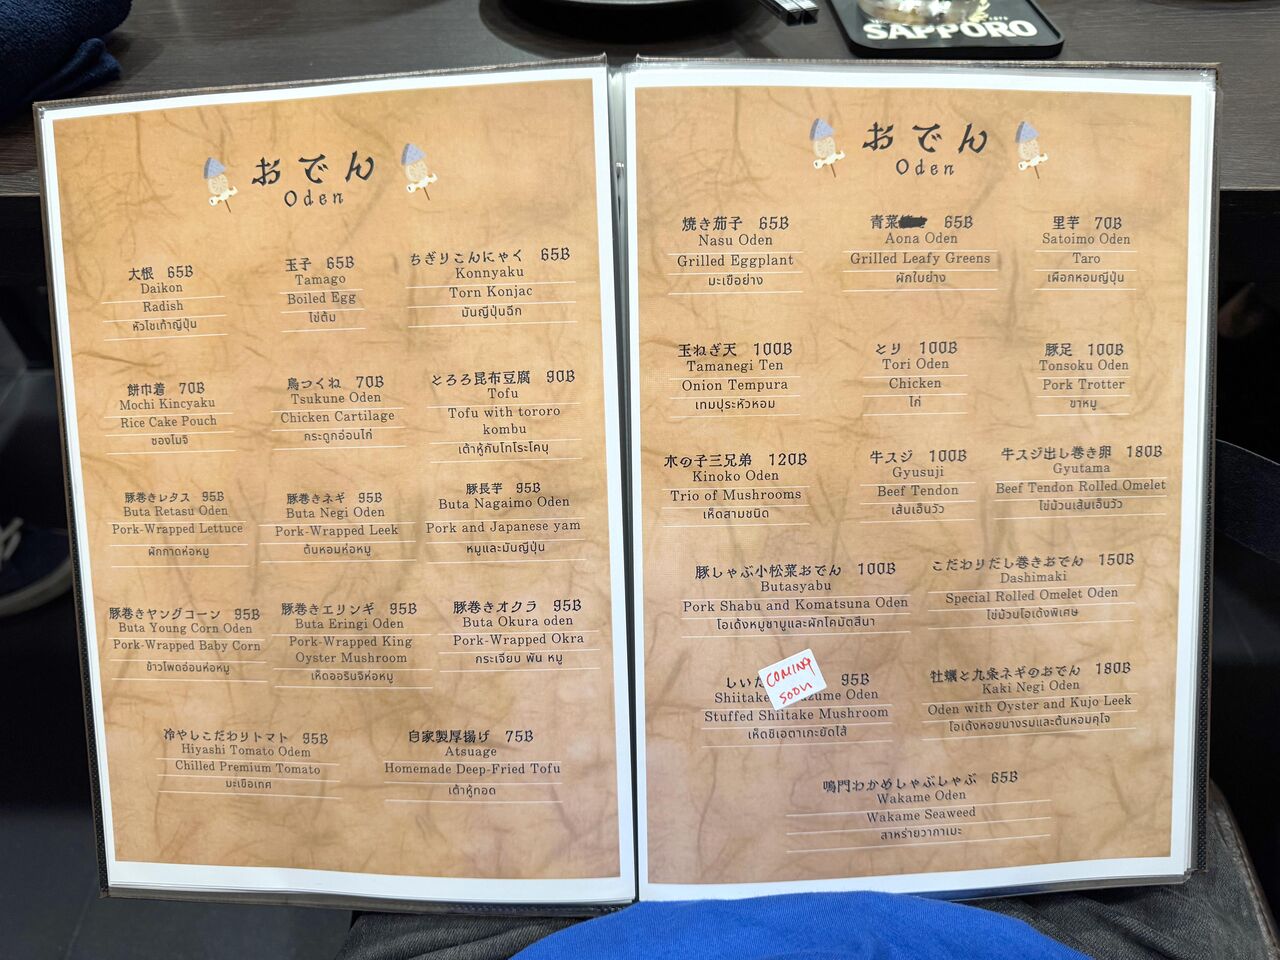 SAPPORO
おでん
Oden
大根 65B
Daikon
Radish
หัวไชเท้าญี่ปุ่น
玉子 65B
Tamago
Boiled Egg
ไข่ต้ม
ちぎりこんにゃく 65B
Konnyaku
Torn Konjac
มันญี่ปุ่นฉีก
餅巾着 70B
Mochi Kincyaku
Rice Cake Pouch
ซองโมจิ
鳥つくね 70B
Tsukune Oden
Chicken Cartilage
กระดูกอ่อนไก่
とろろ昆布豆腐 90B
Tofu
Tofu with tororo
kombu
เต้าหู้กับโทโระโคบุ
豚巻きレタス 95B
Buta Retasu Oden
Pork-Wrapped Lettuce
ผักกาดห่อหมู
豚巻きネギ 95B
Buta Negi Oden
Pork-Wrapped Leek
ต้นหอมห่อหมู
豚長芋 95B
Buta Nagaimo Oden
Pork and Japanese yam
หมูและมันญี่ปุ่น
豚巻きヤングコーン 95B
Buta Young Corn Oden
Pork-Wrapped Baby Corn
ข้าวโพดอ่อนห่อหมู
豚巻きエリンギ 95B
Buta Eringi Oden
Pork-Wrapped King
Oyster Mushroom
เห็ดออรินจิห่อหมู
豚巻きオクラ 95B
Buta Okura oden
Pork-Wrapped Okra
กระเจี๊ยบ พัน หมู
冷やしこだわりトマト 95B
Hiyashi Tomato Odem
Chilled Premium Tomato
มะเขือเทศ
自家製厚揚げ 75B
Atsuage
Homemade Deep-Fried Tofu
เต้าหู้ทอด
おでん
Oden
焼き茄子 65B
Nasu Oden
Grilled Eggplant
มะเขือย่าง
青菜 65B
Aona Oden
Grilled Leafy Greens
ผักใบย่าง
里芋 70B
Satoimo Oden
Taro
เผือกหอมญี่ปุ่น
玉ねぎ天 100B
Tamanegi Ten
Onion Tempura
เทมปุระหัวหอม
とり 100B
Tori Oden
Chicken
ไก่
豚足 100B
Tonsoku Oden
Pork Trotter
ขาหมู
木の子三兄弟 120B
Kinoko Oden
Trio of Mushrooms
เห็ดสามชนิด
牛スジ 100B
Gyusuji
Beef Tendon
เส้นเอ็นวัว
牛スジ出し巻き卵 180B
Gyutama
Beef Tendon Rolled Omelet
ไข่ม้วนเส้นเอ็นวัว
豚しゃぶ小松菜おでん 100B
Butasyabu
Pork Shabu and Komatsuna Oden
โอเด้งหมูชาบูและผักโคมัตสึนา
こだわりだし巻きおでん 150B
Dashimaki
Special Rolled Omelet Oden
ไข่ม้วนโอเด้งพิเศษ
しいた 95B
COMING
soon
Shiitake zume Oden
Stuffed Shiitake Mushroom
เห็ดชิเอตาเกะยัดไส้
牡蠣と九条ネギのおでん 180B
Kaki Negi Oden
Oden with Oyster and Kujo Leek
โอเด้งหอยนางรมและต้นหอมคุโจ
鳴門わかめしゃぶしゃぶ 65B
Wakame Oden
Wakame Seaweed
สาหร่ายวากาเมะ